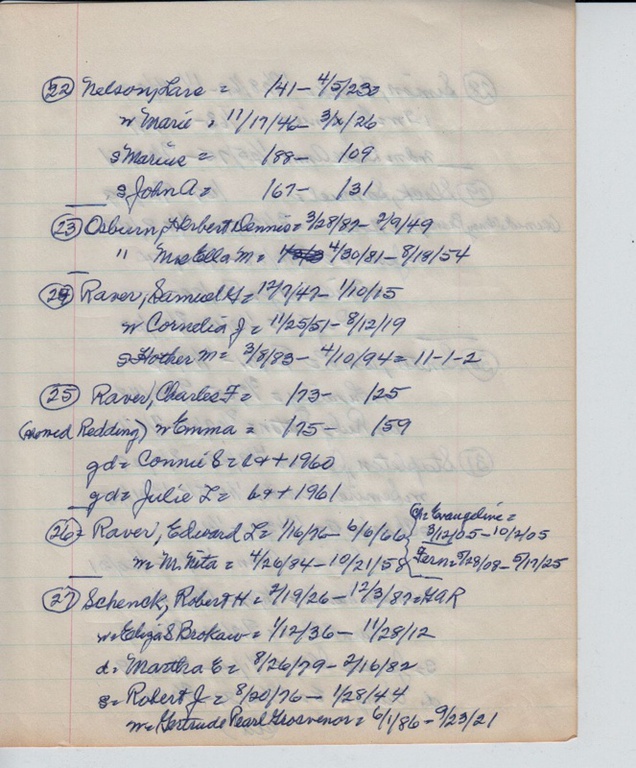 (22) Nelson, Lars = /41 - 4/5/23
w Marie = 11/17/46 - 3/x/26
s Marius = /88 - /09
s John A = /67 - /31
(23) Osburn, Herbert Dennis = 3/28/87 - 2/9/49
" Mrs Ella M = 4/30/81 - 8/18/54
(24) Raver, Samuel G = 12/7/47 - 1/10/15
w Cornelia J = 11/25/51 - 8/12/19
s Hother M = 3/8/83 - 4/10/94 = 11-1-2
(25) Raver, Charles F = /73 - /25
(owned Redding) w Emma = /75 - /59
gd = Connie S = b+d 1960
gd = Julie L = b+d 1961
(26) Raver, Edward L = 1/16/76 - 6/6/66 { d = Evangeline = 3/12/05 - 10/2/05
w = M. Nita = 4/26/84 - 10/21/58 { Fern = 5/28/08 - 5/17/25
(27) Schenck, Robert H = 2/19/26 - 12/3/87 = GAR
w = Eliza S Brokaw = 1/12/36 - 11/28/12
d = Martha E = 8/26/79 - 2/16/82
s = Robert J = 8/20/76 - 1/28/44
w = Gertrude Pearl Grosvenor = 6/1/86 - 9/23/21